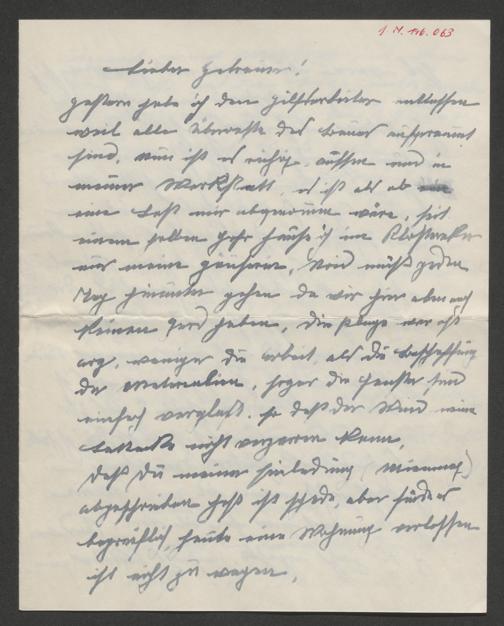 J.N. 196.063
Lieber Getreuer!
gestern habe ich den Hilfsarbeiter entlassen
weil alle Überreste des aufgeräumt
sind, nun ist es ruhig, aussen und in
meiner Werkstatt, es ist als ob
eine Last mir abgenommen wäre, seit
einem halben Jahr hause ich im
nur meine, und muß jeden
Tag hinunter gehen da wir hier oben noch
keinen Herd haben, die Plage war oft
arg, weniger die Arbeit, als die Beschaffung
der Materialien, sogar die Fenster sind
einfach verglast, so daß der Wind meine
nicht kann,
Daß Du meiner Einladung
abgeschrieben hast ist schade, aber finde es
begreiflich, heute eine Wohnung verlassen
ist nicht zu wagen,